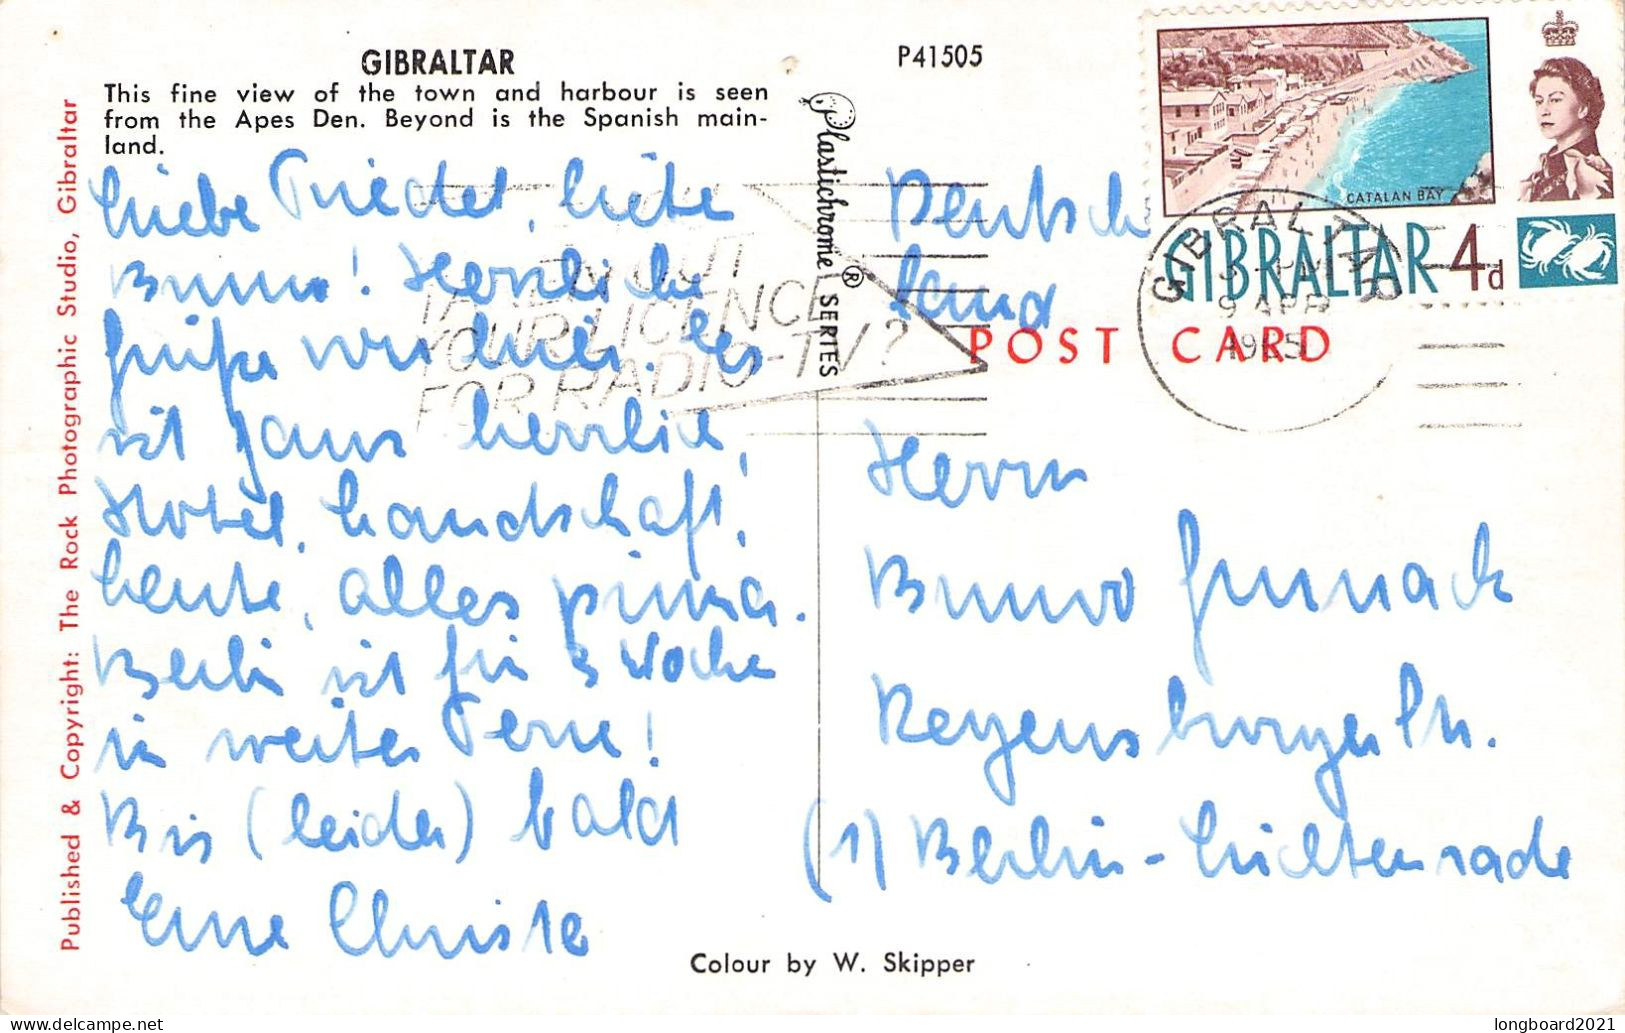 GIBRALTAR
This fine view of the town and harbour is seen
from the Apes Den. Beyond is the Spanish main-
land.
P41505
Published & Copyright: The Rock Photographic Studio, Gibraltar
Plastichrome ® SERIES
CATALAN BAY
GIBRALTAR 4d
GIBRALTAR
9 APR
1965
YOUR LICENCE
FOR RADIO-TV?
POST CARD
Liebe Friedel, liebe
Bruno! Herzliche
Grüße von hier. Es
ist ganz herrlich,
Hotel, Landschaft,
Leute, alles prima.
Berlin ist für 3 Woche
in weiter Ferne!
Bis (leider) bald
Eure Christa
Deutsch
land
Herrn
Bruno
Regensburger Str.
(1) Berlin-Lichtenrade
Colour by W. Skipper
longboard2021